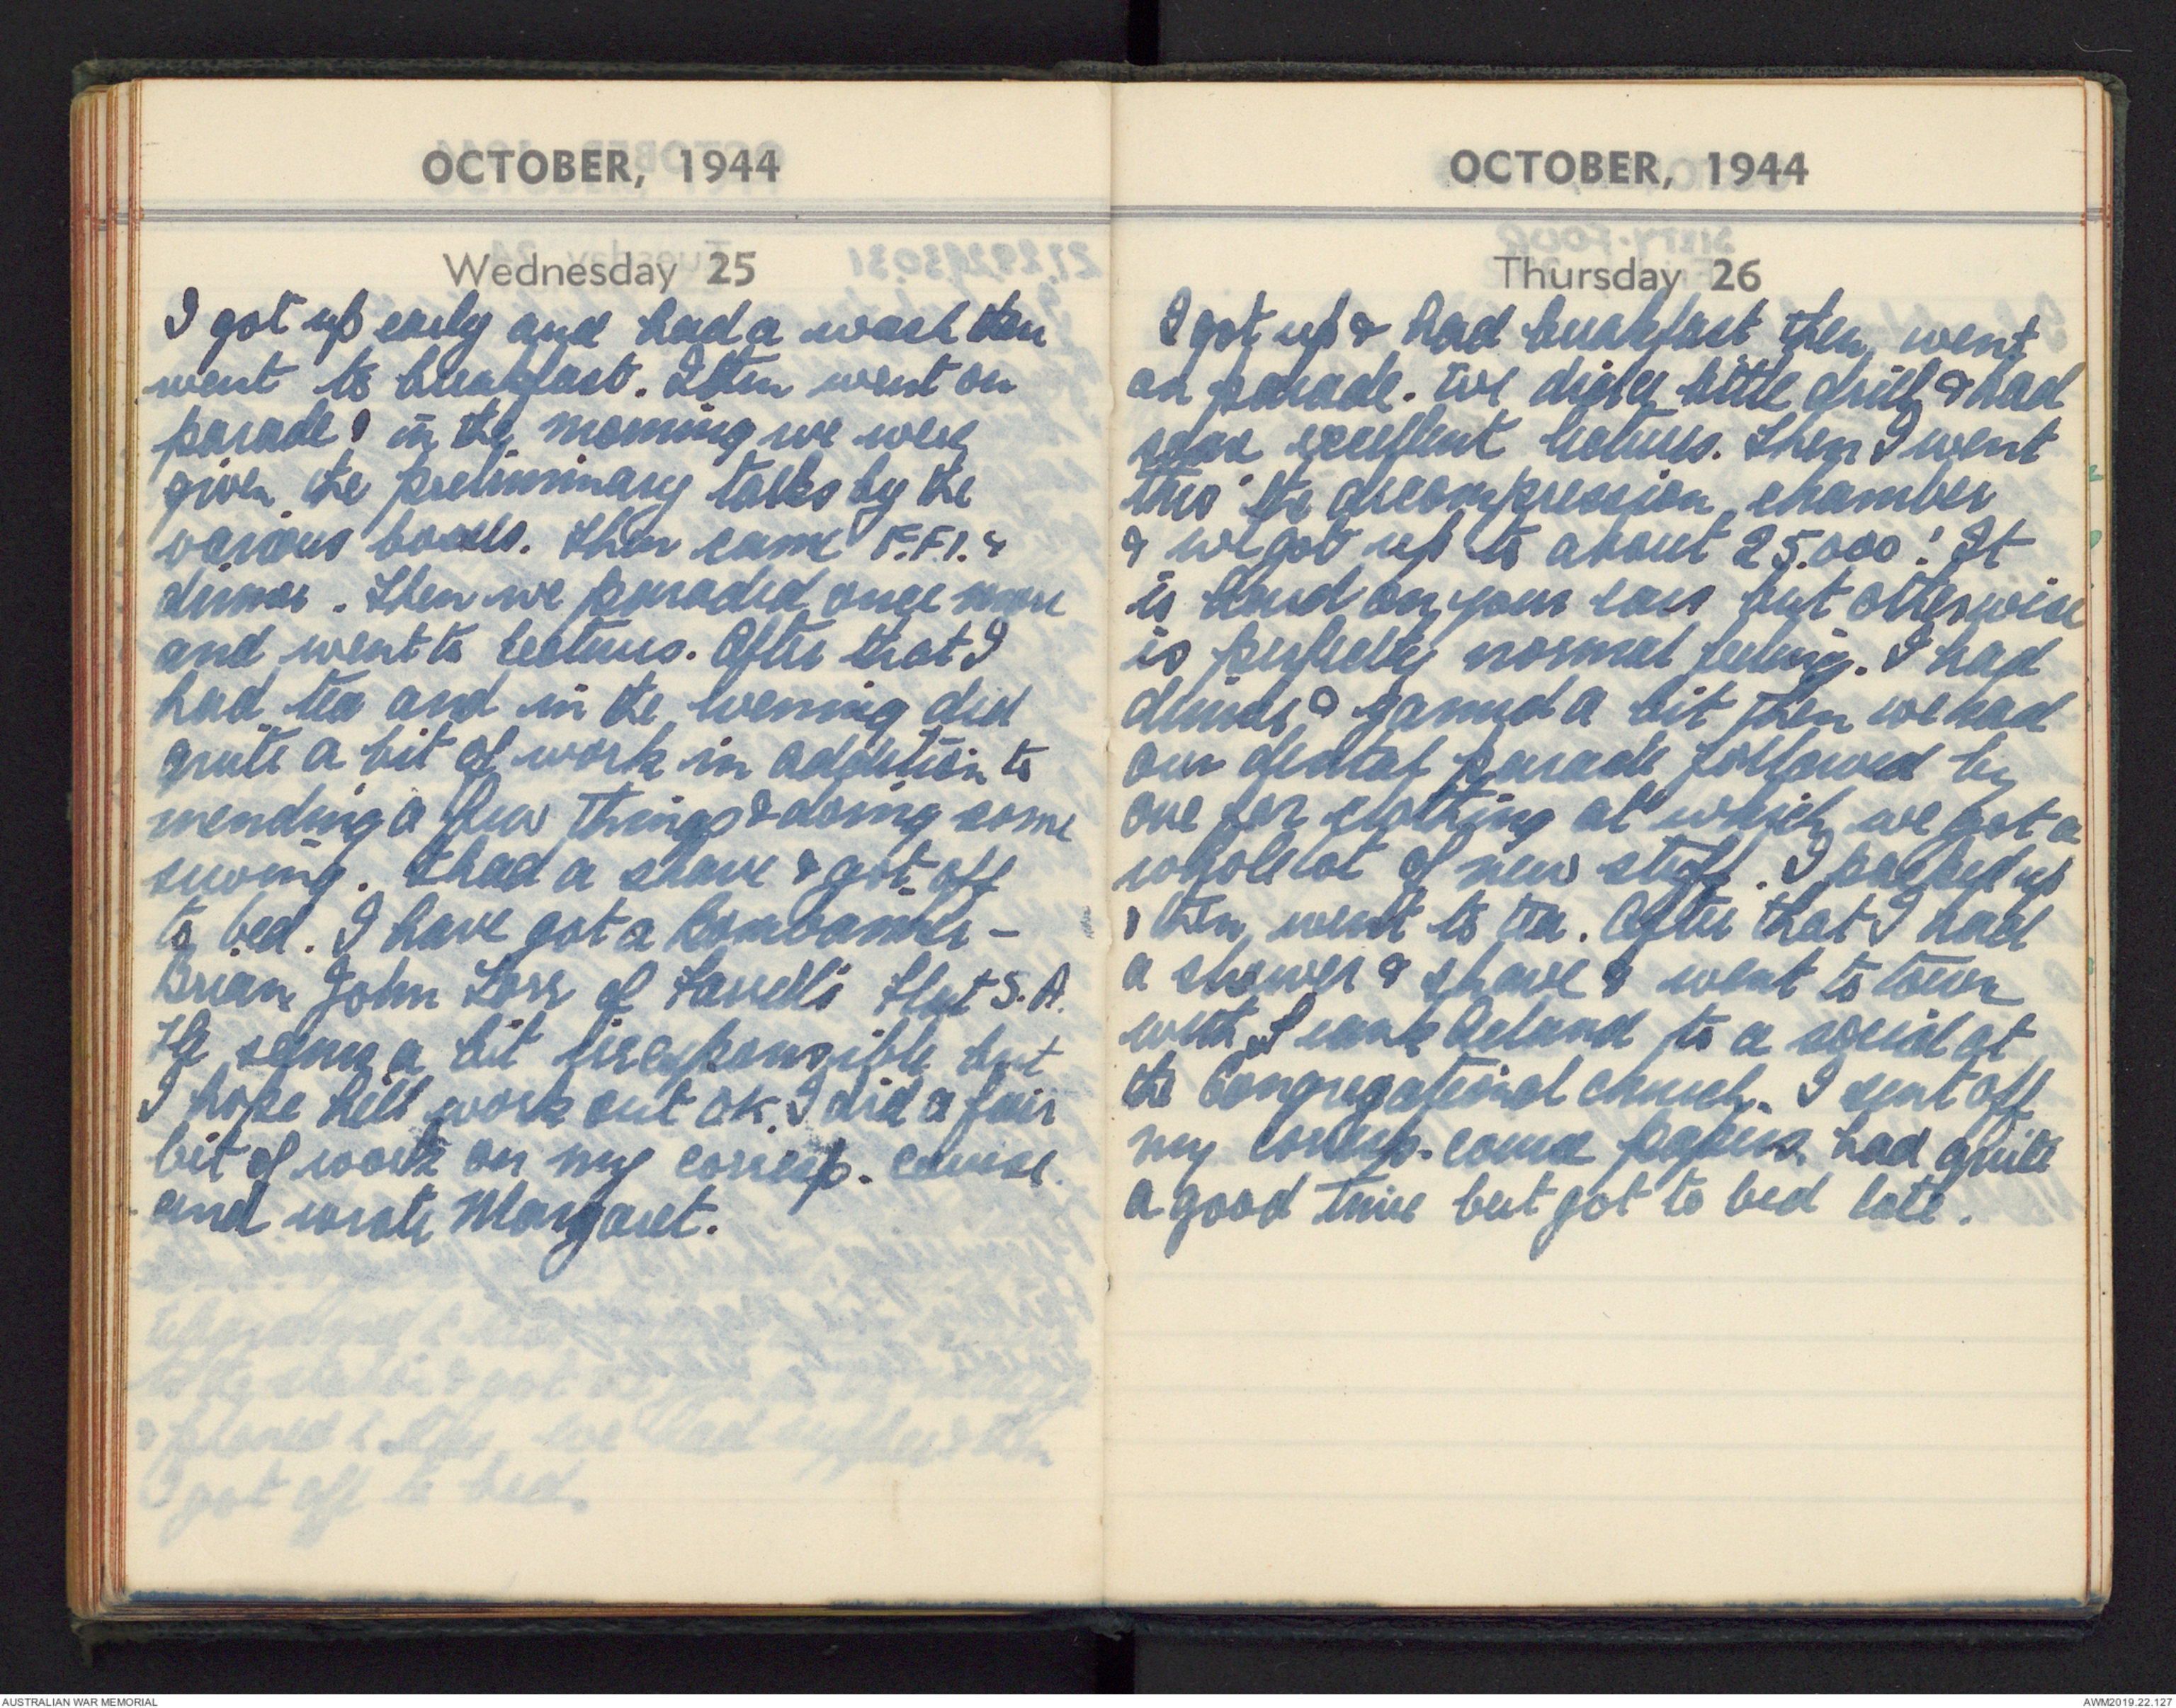 OCTOBER, 1944
Wednesday 25
I got up early and had a wash then
went to breakfast. I then went on
parade & in the morning we were
given the preliminary talks by the
various bods. Then came F.F.I. &
dinner. Then we paraded once more
and went to lectures. After that I
had tea and in the evening did
quite a bit of work in addition to
mending a few things & doing some
sewing. I had a shave & got off
to bed. I have got a bombaimer -
Brian John of Farrell's Flat S.A.
He seems a bit irresponsible but
I hope he'll work out OK. I did a fair
bit of work on my corresp. course
and wrote Margaret.
OCTOBER, 1944
Thursday 26
I got up & had breakfast then went
on parade. We did a little drill & had
some excellent lectures. Then I went
thro' the decompression chamber
& we got up to about 25.000! It
is hard on your ears but otherwise
is perfectly normal feeling. I had
dinner & yarned a bit then we had
our dental parade followed by
one for clothing at which we got a
whole lot of new stuff. I packed up
& then went to tea. After that I had
a shower & shave & went to town
with Frank to a social at
the Congregational Church. I sent off
my corresp. course papers. had quite
a good time but got to bed late.
AUSTRALIAN WAR MEMORIAL
AWM2019.22.127